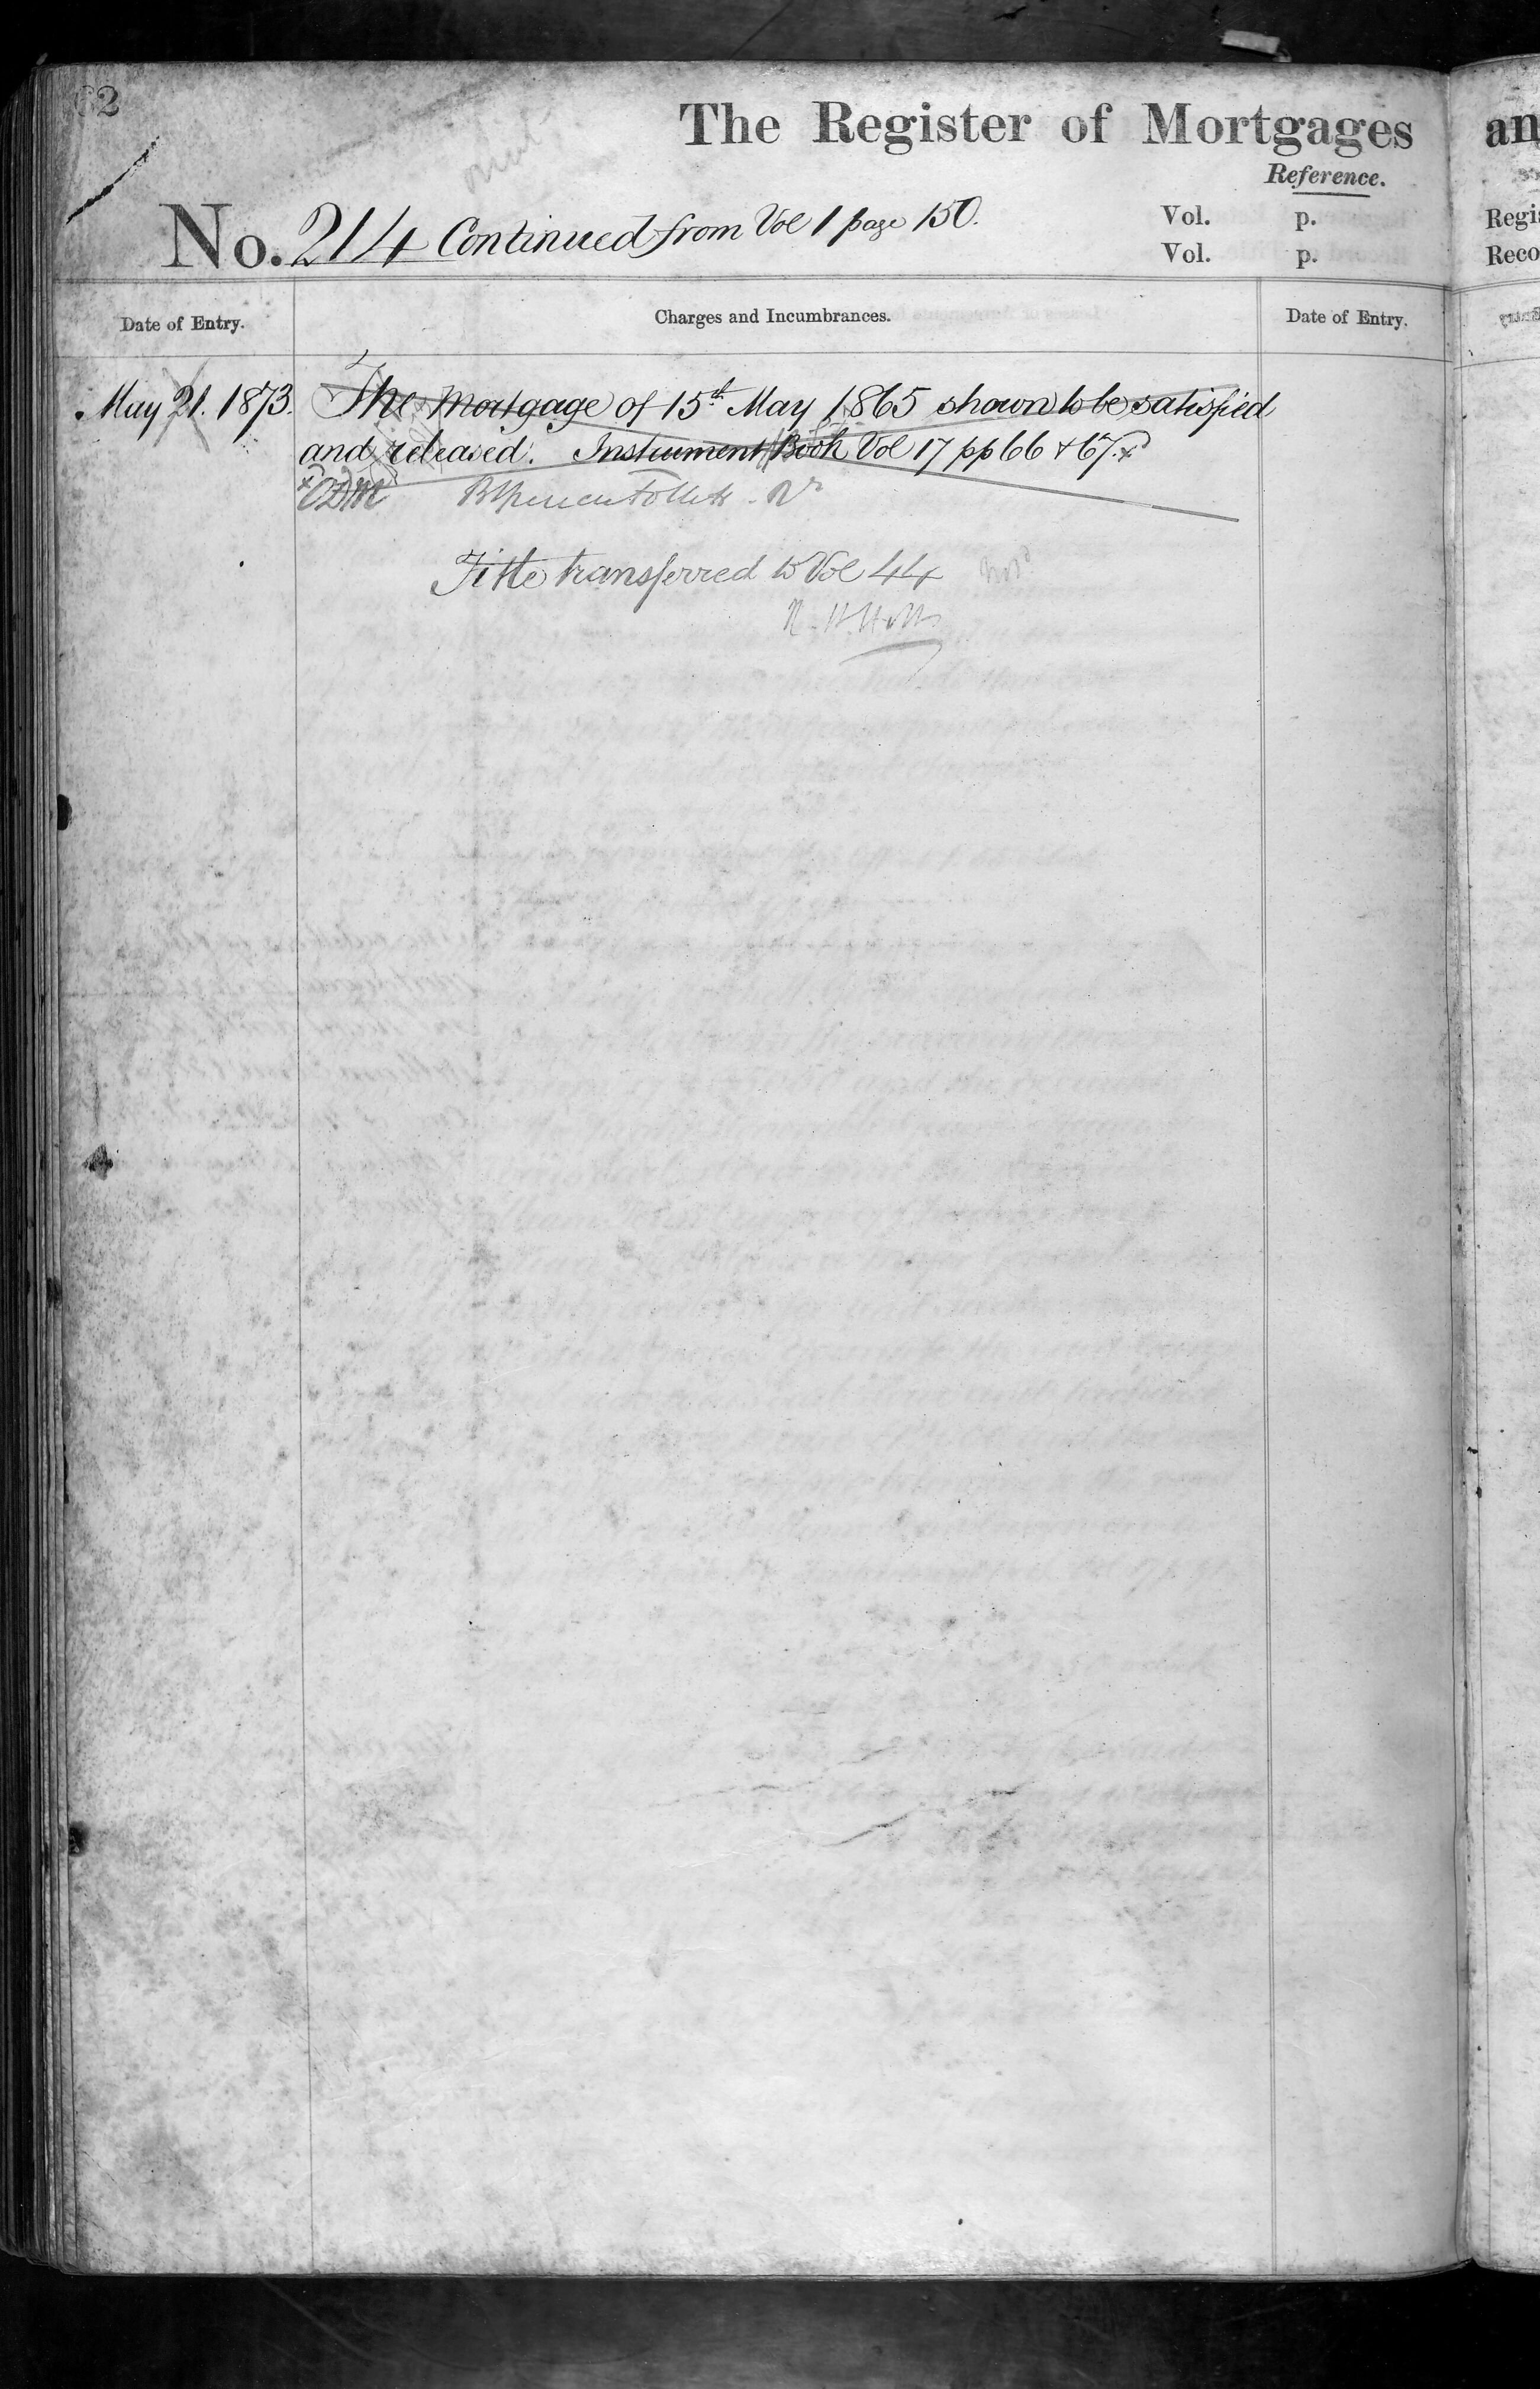 62
The Register of Mortgages
an
Reference.
No. 214 Continued from Vol 1 page 150.
Vol. p.
Regis
Vol. p.
Reco
Date of Entry.
Charges and Incumbrances.
Date of Entry.
May 21. 1873.
The Mortgage of 15th May 1865 shown to be satisfied
and released. Instrument Book Vol 17 pp 66 & 67.
Title transferred to Vol 44